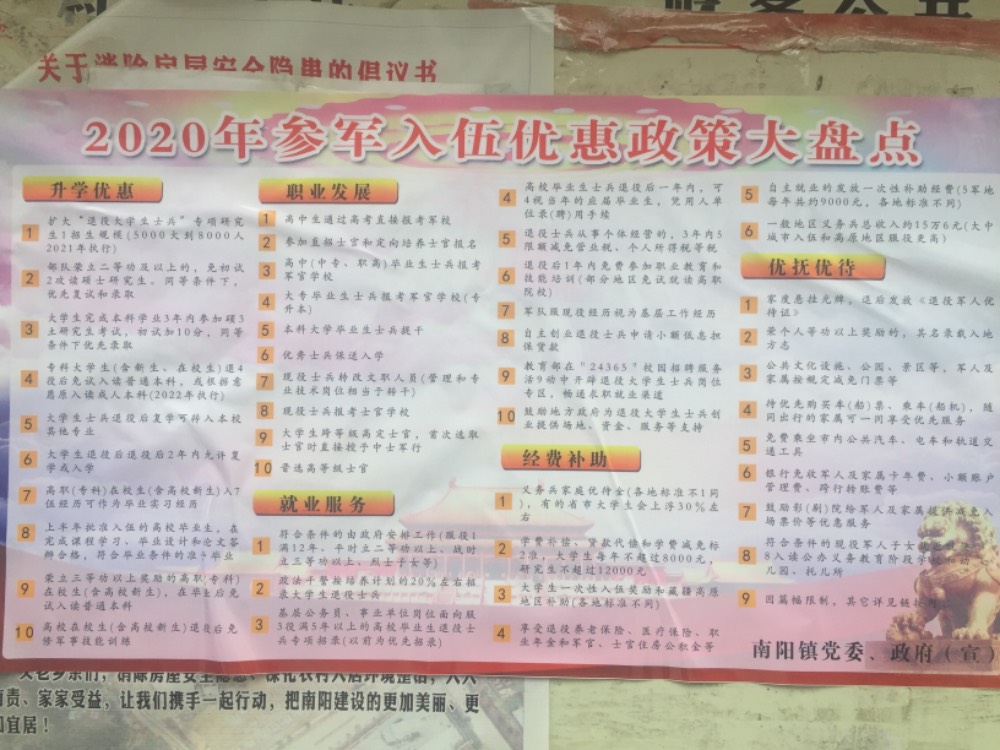 关于消除房屋安全隐患的倡议书
2020年参军入伍优惠政策大盘点
升学优惠
1 扩大"退役大学生士兵"专项研究
生1招生规模(5000大到8000人
2021年执行)
2 部队荣立二等功及以上的,免初试
2攻读硕士研究生。同等条件下,
优先复试和录取
3 大学生完成本科学业3年内参加硕3
士研究生考试,初试加10分,同等
条件下优先录取
4 专科大学生(含新生、在校生)退4
役后免试入读普通本科,或根据意
愿原入读成人本科(2022年执行)
5 大学生士兵退役后复学可转入本校
其他专业
6 大学生退役后退役后2年内允许复
学或入学
7 高职(专科)在校生(含高校新生)入7
伍经历可作为毕业实习经历
8 上半年批准入伍的高校毕业生,在
完成课程学习、毕业设计和论文答
辩合格,符合毕业条件的准予毕业
9 荣立三等功以上奖励的高职(专科)
在校生(含高校新生),在毕业后免
试入读普通本科
10 高校在校生(含高校新生)退役后免
修军事技能训练
职业发展
1 高中生通过高考直接报考军校
2 参加直招士官和定向培养士官报名
3 高中(中专、职高)毕业生士兵报考
军官学校
4 大专毕业生士兵报考军官学校(专
升本)
5 本科大学毕业生士兵提干
6 优秀士兵保送入学
7 现役士兵转改文职人员(管理和专
业技术岗位相当于转干)
8 现役士兵报考士官学校
9 大学生跨等级高定士官,首次选取
士官时直接授予中士军行
10 普选高等级士官
就业服务
1 符合条件的由政府安排工作(服役1
满12年、平时立二等功以上、战时
立三等功以上、烈士子女等)
2 政法干警按培养计划的20%左右招
录大学生退役士兵
3 基层公务员、事业单位岗位面向服
3役满5年以上的高校毕业生退役士
兵专项招录(以前为优先招录)
4 高校毕业生士兵退役后一年内,可
4视当年的应届毕业生,凭用人单
位录(聘)用手续
5 退役士兵从事个体经营的,3年内5
限额减免营业税、个人所得税等税
6 退役后1年内免费参加职业教育和
技能培训(部分地区免试就读高职
院校)
7 军队服现役经历视为基层工作经历
8 自主创业退役士兵申请小额低息担
保贷款
9 教育部在"24365"校园招聘服务
活9动中开辟退役大学生士兵岗位
专区,畅通求职就业渠道
10 鼓励地方政府为退役大学生士兵创
业提供场地、资金、服务等支持
经费补助
1 义务兵家庭优待金(各地标准不1同
),有的省市大学生会上浮30%左
右
2 学费补偿、贷款代偿和学费减免标
2准,大学生每年不超过8000元,
研究生不超过12000元
3 大学生一次性入伍奖励和藏疆高原
地区补助(各地标准不同)
4 享受退役养老保险、医疗保险、职
业年金和军官、士官住房公积金等
5 自主就业的发放一次性补助经费(5军地
每年共约9000元,各地标准不同)
6 一般地区义务兵总收入约15万6元(大中
城市入伍和高原地区服役更高)
优抚优待
1 家庭悬挂光牌,退后发放《退役军人优
待证》
2 荣个人等功以上奖励的,其名录载入地
方志
3 公共文化设施、公园、景区等,军人及
家属按规定减免门票等
4 待优先购买车(船)票、乘车(船机),随
同出行的家属可一同享受优先服务
5 免费乘坐市内公共汽车、电车和轨道交
通工具
6 银行免收军人及家属卡年费、小额账户
管理费、跨行转账费等
7 鼓励影(剧)院给军人及家属提供减免入
场票价等优惠服务
8 符合条件的现役军人子女
8入读公办义务教育阶段学
儿园、托儿所
9 因篇幅限制,其它详见链接
南阳镇党委、政府(宣)
责、家家受益,让我们携手一起行动,把南阳建设的更加美丽、更
宜居!